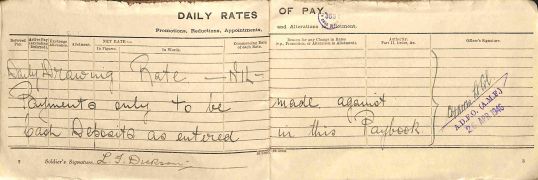 DAILY RATES OF PAY
Promotions, Reductions, Appointments, and Alterations Allotment.
NET RATE
Allotment.
In Figures.
In Words.
Commencing Date of each Rate.
Reason for any Change in Rates (e.g., Promotion, or Alteration in Allotment).
Authority, Part II. Order, &c.
Officer's Signature.
Daily Drawing Rate — NIL —
Payments only to be made against
Cash Deposits as entered in this Paybook
A.D.P.O. (A.M.F.)
26 APR 1945
Soldier's Signature